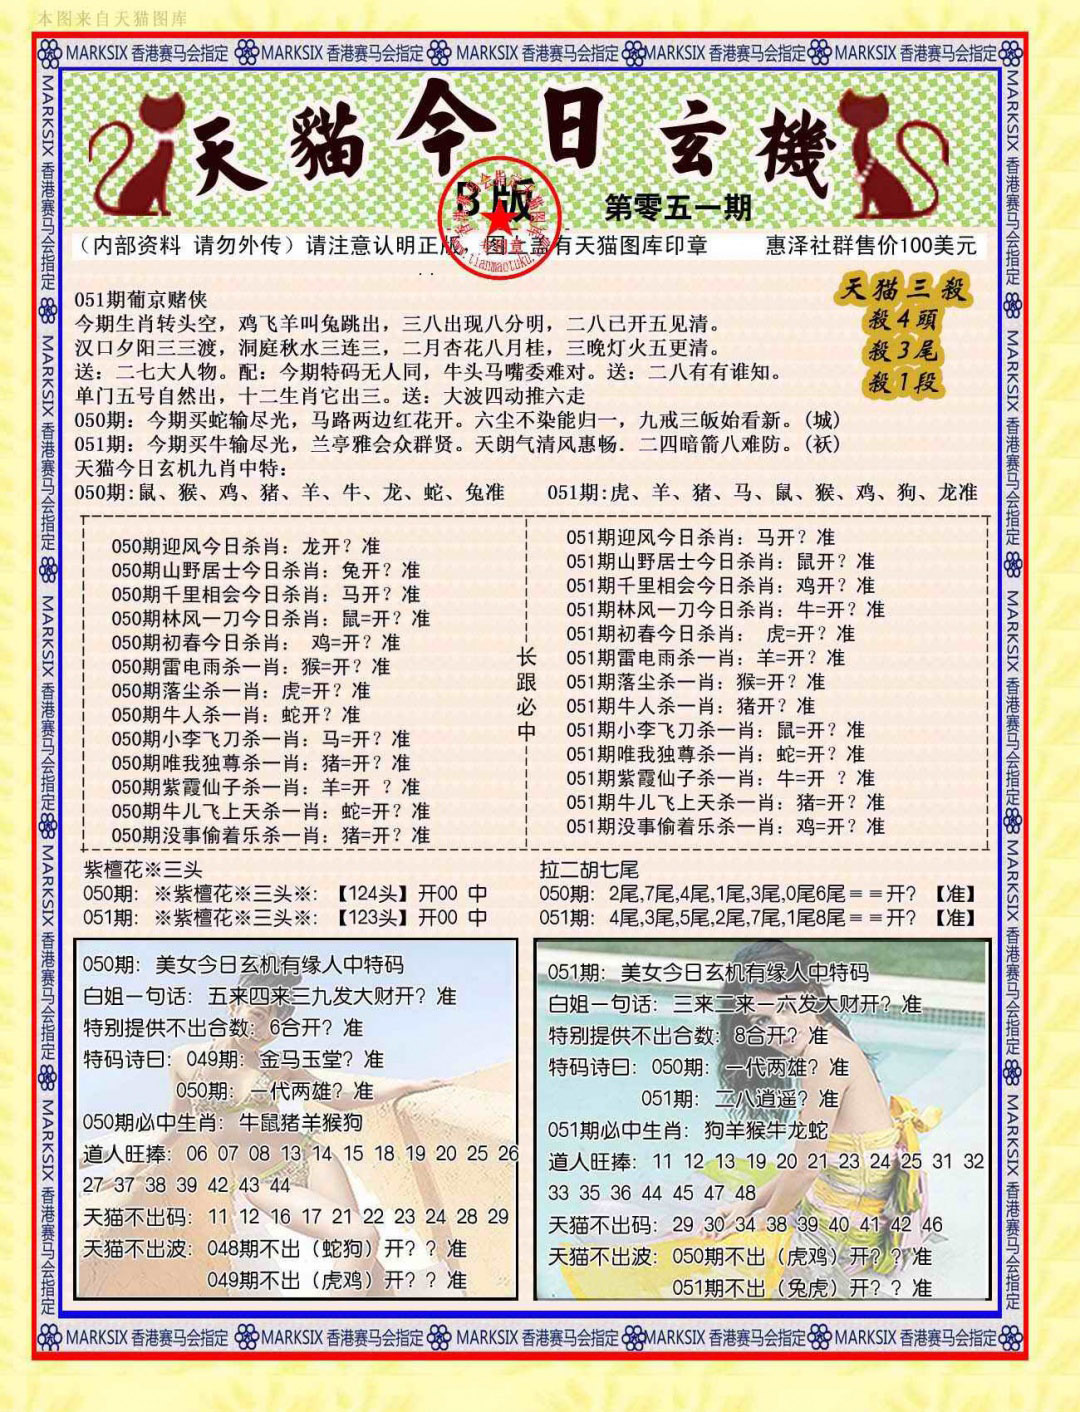 本图来自天猫图库
MARKSIX 香港赛马会指定 MARKSIX 香港赛马会指定 MARKSIX 香港赛马会指定 MARKSIX 香港赛马会指定 MARKSIX 香港赛马会指定
天貓今日玄機
B版
第零五一期
（内部资料 请勿外传）请注意认明正版，图上盖有天猫图库印章 惠泽社群售价100美元
天猫三殺
殺4頭
殺3尾
殺1段
051期葡京赌侠
今期生肖转头空，鸡飞羊叫兔跳出，三八出现八分明，二八已开五见清。
汉口夕阳三三渡，洞庭秋水三连三，二月杏花八月桂，三晚灯火五更清。
送：二七大人物。配：今期特码无人同，牛头马嘴委难对。送：二八有有谁知。
单门五号自然出，十二生肖它出三。送：大波四动推六走
050期：今期买蛇输尽光，马路两边红花开。六尘不染能归一，九戒三皈始看新。(城)
051期：今期买牛输尽光，兰亭雅会众群贤。天朗气清风惠畅．二四暗箭八难防。(袄)
天猫今日玄机九肖中特：
050期:鼠、猴、鸡、猪、羊、牛、龙、蛇、兔准 051期:虎、羊、猪、马、鼠、猴、鸡、狗、龙准
050期迎风今日杀肖：龙开？准
050期山野居士今日杀肖：兔开？准
050期千里相会今日杀肖：马开？准
050期林风一刀今日杀肖：鼠=开？准
050期初春今日杀肖： 鸡=开？准
050期雷电雨杀一肖：猴=开？准
050期落尘杀一肖：虎=开？准
050期牛人杀一肖：蛇开？准
050期小李飞刀杀一肖：马=开？准
050期唯我独尊杀一肖：猪=开？准
050期紫霞仙子杀一肖：羊=开 ？准
050期牛儿飞上天杀一肖：蛇=开？准
050期没事偷着乐杀一肖：猪=开？准
长跟必中
051期迎风今日杀肖：马开？准
051期山野居士今日杀肖：鼠开？准
051期千里相会今日杀肖：鸡开？准
051期林风一刀今日杀肖：牛=开？准
051期初春今日杀肖： 虎=开？准
051期雷电雨杀一肖：羊=开？准
051期落尘杀一肖：猴=开？准
051期牛人杀一肖：猪开？准
051期小李飞刀杀一肖：鼠=开？准
051期唯我独尊杀一肖：蛇=开？准
051期紫霞仙子杀一肖：牛=开 ？准
051期牛儿飞上天杀一肖：猪=开？准
051期没事偷着乐杀一肖：鸡=开？准
紫檀花※三头
050期：※紫檀花※三头※:【124头】开00 中
051期：※紫檀花※三头※:【123头】开00 中
拉二胡七尾
050期：2尾,7尾,4尾,1尾,3尾,0尾6尾＝＝开？【准】
051期：4尾,3尾,5尾,2尾,7尾,1尾8尾＝＝开？【准】
050期：美女今日玄机有缘人中特码
白姐一句话：五来四来三九发大财开？准
特别提供不出合数：6合开？准
特码诗曰：049期：金马玉堂？准
050期：一代两雄？准
050期必中生肖：牛鼠猪羊猴狗
道人旺捧：06 07 08 13 14 15 18 19 20 25 26
27 37 38 39 42 43 44
天猫不出码：11 12 16 17 21 22 23 24 28 29
天猫不出波：048期不出（蛇狗）开？？准
049期不出（虎鸡）开？？准
051期：美女今日玄机有缘人中特码
白姐一句话：三来二来一六发大财开？准
特别提供不出合数：8合开？准
特码诗曰：050期：一代两雄？准
051期：二八逍遥？准
051期必中生肖：狗羊猴牛龙蛇
道人旺捧：11 12 13 19 20 21 23 24 25 31 32
33 35 36 44 45 47 48
天猫不出码：29 30 34 38 39 40 41 42 46
天猫不出波：050期不出（虎鸡）开？？准
051期不出（兔虎）开？？准
MARKSIX 香港赛马会指定 MARKSIX 香港赛马会指定 MARKSIX 香港赛马会指定 MARKSIX 香港赛马会指定 MARKSIX 香港赛马会指定
MARKSIX 香港赛马会指定 MARKSIX 香港赛马会指定 MARKSIX 香港赛马会指定 MARKSIX 香港赛马会指定 MARKSIX 香港赛马会指定
MARKSIX 香港赛马会指定 MARKSIX 香港赛马会指定 MARKSIX 香港赛马会指定 MARKSIX 香港赛马会指定 MARKSIX 香港赛马会指定